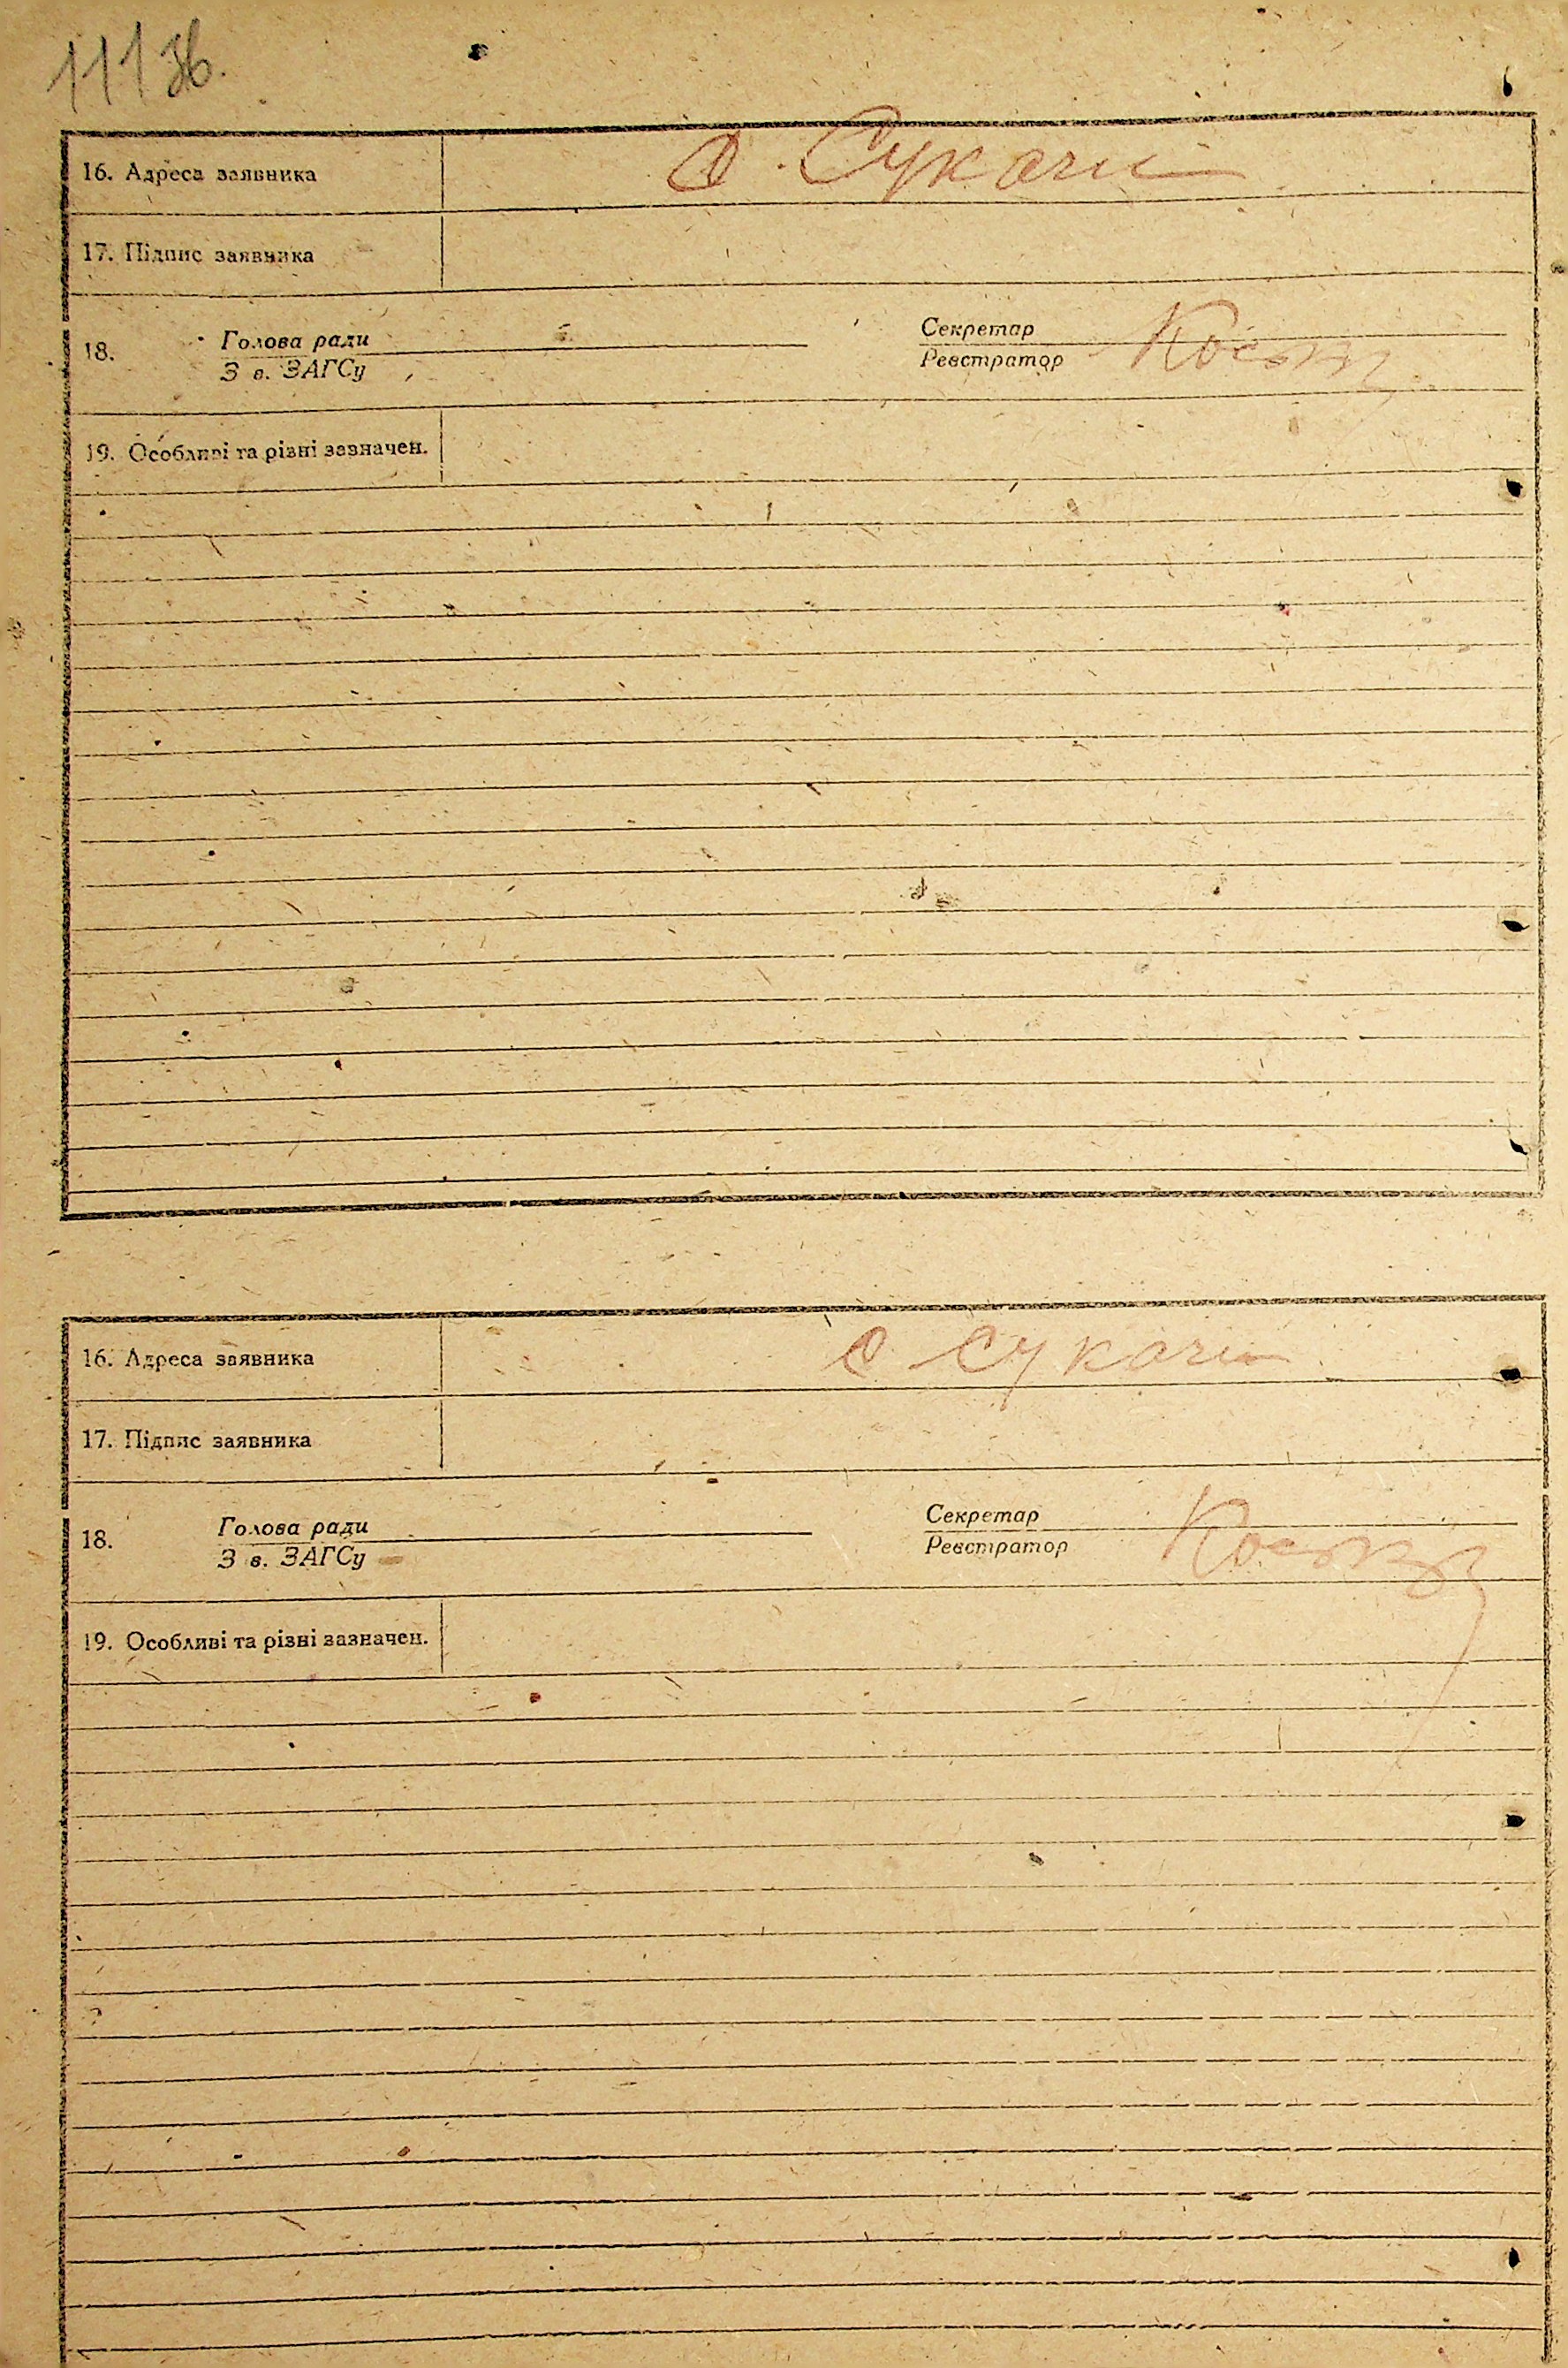 111 зв.
16. Адреса заявника С. Сукачі
17. Підпис заявника
18. Голова ради Секретар
З в. ЗАГСу Реєстратор
19. Особливі та різні зазначен.
16. Адреса заявника С Сукачі
17. Підпис заявника
18. Голова ради Секретар
З в. ЗАГСу Реєстратор
19. Особливі та різні зазначен.